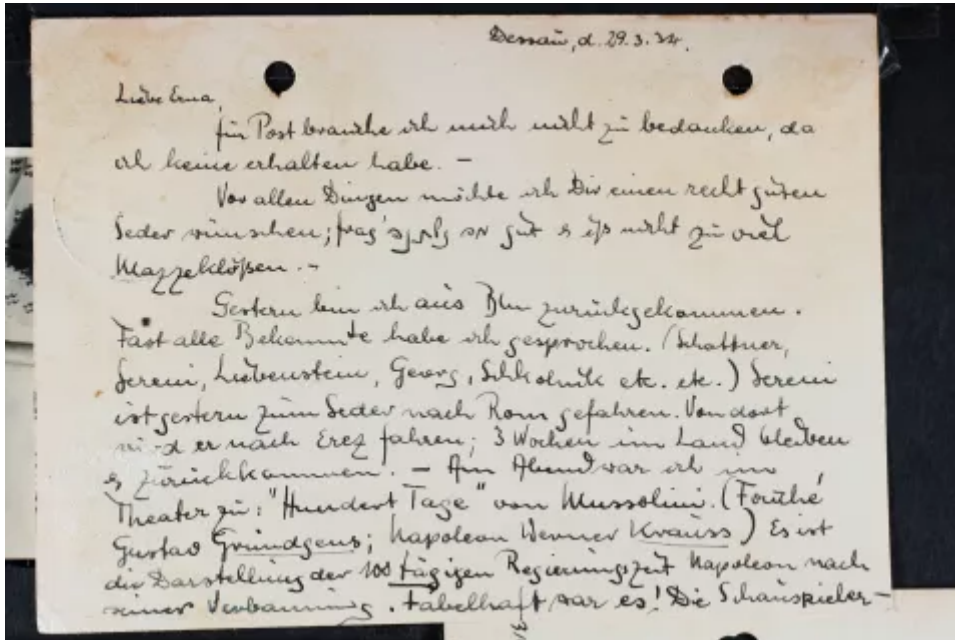 Dessau, d. 29.3.34.
Liebe Erna,
für Post brauche ich mich nicht zu bedanken, da
ich keine erhalten habe. —
Vor allen Dingen möchte ich Dir einen recht guten
Seder wünschen; frag gut & iß nicht zu viel
Mazzeklößen. –
Gestern bin ich aus Bln zurückgekommen.
Fast alle Bekannte habe ich gesprochen. (Schattner,
Sereni, Liebenstein, Georg, Schkolnik etc. etc.) Sereni
ist gestern zum Seder nach Rom gefahren. Von dort
wird er nach Erez fahren; 3 Wochen im Land bleiben
& zurückkommen. — Am Abend war ich im
Theater zu: "Hundert Tage" von Mussolini. (Fouché
Gustav Gründgens; Napoleon Werner Krauss) Es ist
die Darstellung der 100 tägigen Regierungszeit Napoleon nach
seiner Verbannung. Fabelhaft war es! Die Schauspieler –